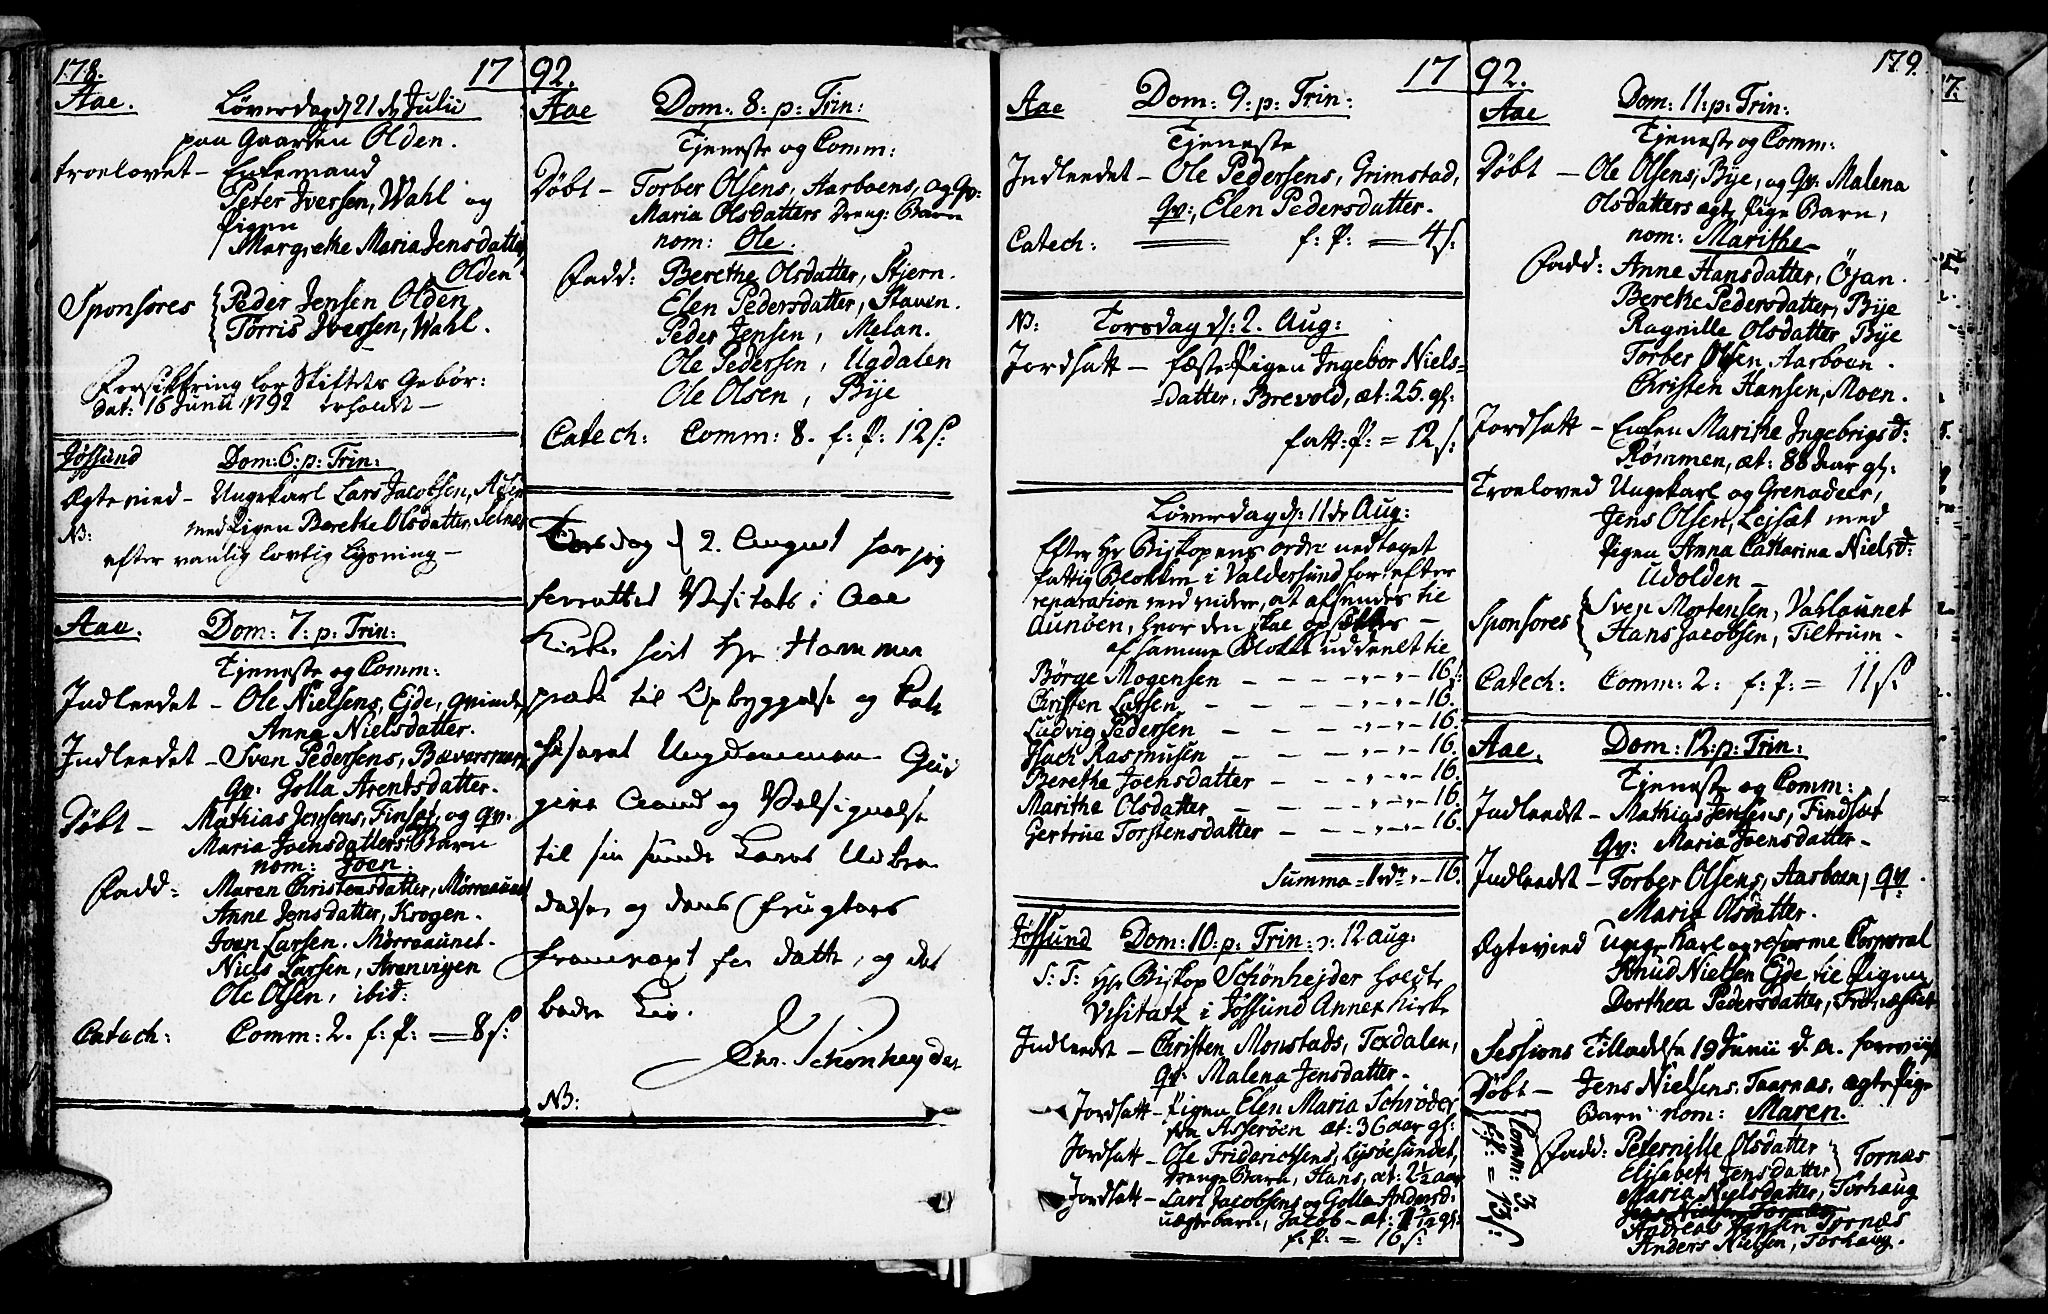 178.
17
Aae.
Løverdag d 21 de Julii
paa Gaarden Olden.
troelovet – Enkemand
Peter Iversen, Wahl og
Pigen
Margrethe Maria Jensdatter,
Olden
Sponsores { Peder Jensen Olden
Torris Iversen, Wahl.
Forsikkring for Skiftets Gebør:
dat: 16 Junii 1792 erholdt –
Jøssund
Dom: 6: p: Trin:
Ægtevied – Ungekarl Lars Jacobsen,
N: med Pigen Berethe Olsdatter, Selnes
efter vanlig lovlig Lysning –
Aae.
Dom: 7: p: Trin:
Tjeneste og Comm:
Indleedet – Ole Nielsens, Ejde, Qvinde,
Anna Nielsdatter.
Indleedet – Sven Pedersens, Bæversmyr,
Qv: Golla Arentsdatter.
Døbt – Mathias Jensens, Finset, og Qv.
Maria Joensdatters Barn
nom: Joen.
Fadd: Maren Christensdatter, Mørreaunet
Anne Jensdatter, Krogen.
Joen Larsen. Mørreaunet.
Niels Larsen, Arenvigen
Ole Olsen, ibid:
Catech: Comm: 2. f: P: = 8 s:
92.
Aae
Dom: 8: p: Trin:
Tjeneste og Comm:
Døbt – Torber Olsens, Aarboens, og Qv:
Maria Olsdatters Dreng: Barn
nom: Ole.
Fadd: Berethe Olsdatter, Stjern.
Elen Pedersdatter, Staven.
Peder Jensen, Melan.
Ole Pedersen, Ugdalen
Ole Olsen, Bye
Catech: Comm: 8. f: P: 12 s:
Torsdag d 2. August har jeg
forrettet Visitats i Aae
Kirke hørt Hr Hammer
præke til Opbyggelse og Kate
chiseret Ungdommen Gud
give Aand og Velsignelse
til sin sunde Lærs Udbre
delse og dens Frugters
fremvext for dette, og det
bedre Liv.
Chr. Schønheyder
NB:
17
Aae
Dom: 9: p: Trin:
Tjeneste
Indleedet – Ole Pedersens, Grimstad,
Qv:, Elen Pedersdatter.
Catech: f: P: = 4 s:
N: Torsdag d: 2. Aug:
Jordsatt – fæste Pigen Ingebor Niels=
=datter, Brevold, æt: 25. gl:
fatt: P: = 12 s:
Løverdag d: 11 de Aug:
Efter Hr Biskopens ordre nedtaget
fattig Blokken i Valdersund for efter
reparation med videre, at afsendes til
Aunøen, hvor den skal opsættes –
af samme Blokk uddeelt til
Børge Mogensen – – – " – " – 16 s:
Christen Larsen – – – – " – " – 16.
Ludvig Pedersen – – – " – " – 16.
Hack Rasmusen – – – " – " – 16.
Berethe Joensdatter – – – " – " – 16.
Marithe Olsdatter – – – " – " – 16.
Gertrue Torstensdatter – – – " – " – 16.
Summa = 1 rdr " – 16.
Jøssund Dom: 10: p: Trin: 12 aug:
S: T: Hr Biskop Schönhejder holdt
Visitatz i Jøssund Annex Kirke
Indleedt – Christen Monstads, Toxdalen,
Qv: Malena Jensdatter –
Jordsatt – Pigen Elen Maria Schrøder
fra Asserøen æt: 36 aar gl:
Jordsatt – Ole Friderichsens, Lysøesundet,
Drenge Barn, Hans, æt: 2½ aar
Jordsatt – Lars Jacobsens og Golla Andersd:
uægte barn, Jacob – æt: gl:
f: P: = 16 s:
92.
179.
Aae
Dom: 11: p: Trin:
Tjeneste og Comm:
Døbt – Ole Olsens, Bye, og Qv: Malena
Olsdatters ægte Pige Barn,
nom: Marithe
Fadd: Anne Hansdatter, Öjan.
Berethe Pedersdatter, Bye
Ragnille Olsdatter Bye
Torber Olsen, Aarboen.
Christen Hansen, Moen.
Jordsatt – Enken Marithe Ingebrigsd:
Rømmen, æt: 88 Aar gl:
Troeloved Ungekarl og Grenadeer,
Jens Olsen, Lejsæt med
Pigen Anna Catharina Nielsd:
Udolden –
Sponsores { Sven Mortensen, Vahlaunet
Hans Jacobsen, Tiltrum.
Catech: Comm: 2: f: P: = 11 s:
Aae.
Dom: 12: p: Trin:
Tjeneste og Comm:
Indleedt – Mathias Jensens, Findsæt
Qv: Maria Joensdatter –
Indleedt – Torber Olsens, Aarboen, Qv.
Maria Olsdatter.
Ægteviied Unge karl og reforme Corporal
Knud Nielsen Ejde til Pigen
Dorthea Pedersdatter,
Sessions Tilladelse 19 Junii d. a. foreviist
Døbt – Jens Nielsens, Taarnæs, ægte Pige
Barn nom: Maren.
Fadd: Peternille Olsdatter
Elisabeth Jensdatter } Tornæs
Maria Nielsdatter, Torhaug
Andreas Hansen Tornæs
Anders Nielsen, Torhaug.
Comm: 3.
f: P: = 13 s: